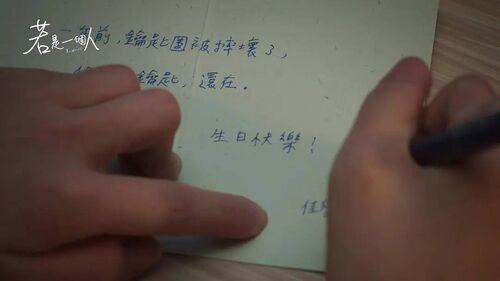 若是一個人
年前，鑰匙圈被摔壞了，
鑰匙，還在。
生日快樂！
佳